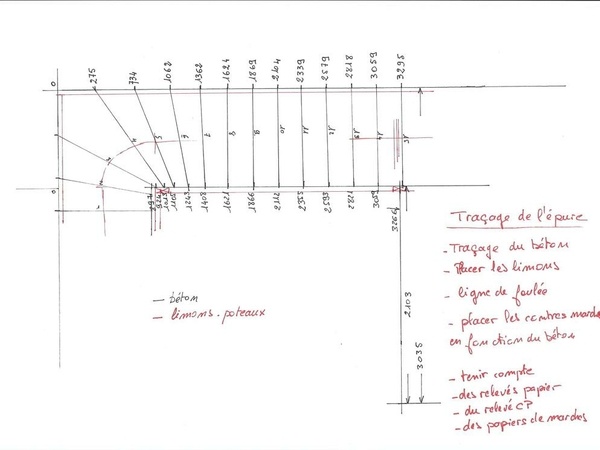 275
734
1062
1362
1624
1869
2104
2339
2579
2818
3059
3295
0
0
1105
1243
1408
1621
1866
2112
2355
2593
2821
3059
3266
7
10
11
12
2103
3035
— béton
— limons.poteaux
Traçage de l'épure
- Traçage du béton
- Placer les limons
- ligne de foulée
- placer les contres
en fonction du béton
- tenir compte
- des relevés papier
- du relevé CP
- des papiers de